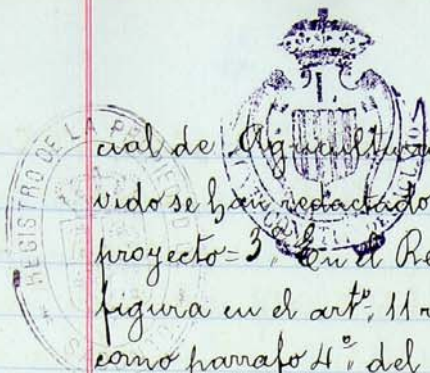 REGISTRO DE LA PR
cial de Agricultura
vido se han redactado
proyecto = 3ª En el Re
figura en el artº. 11 r
como parrafo 4º. del